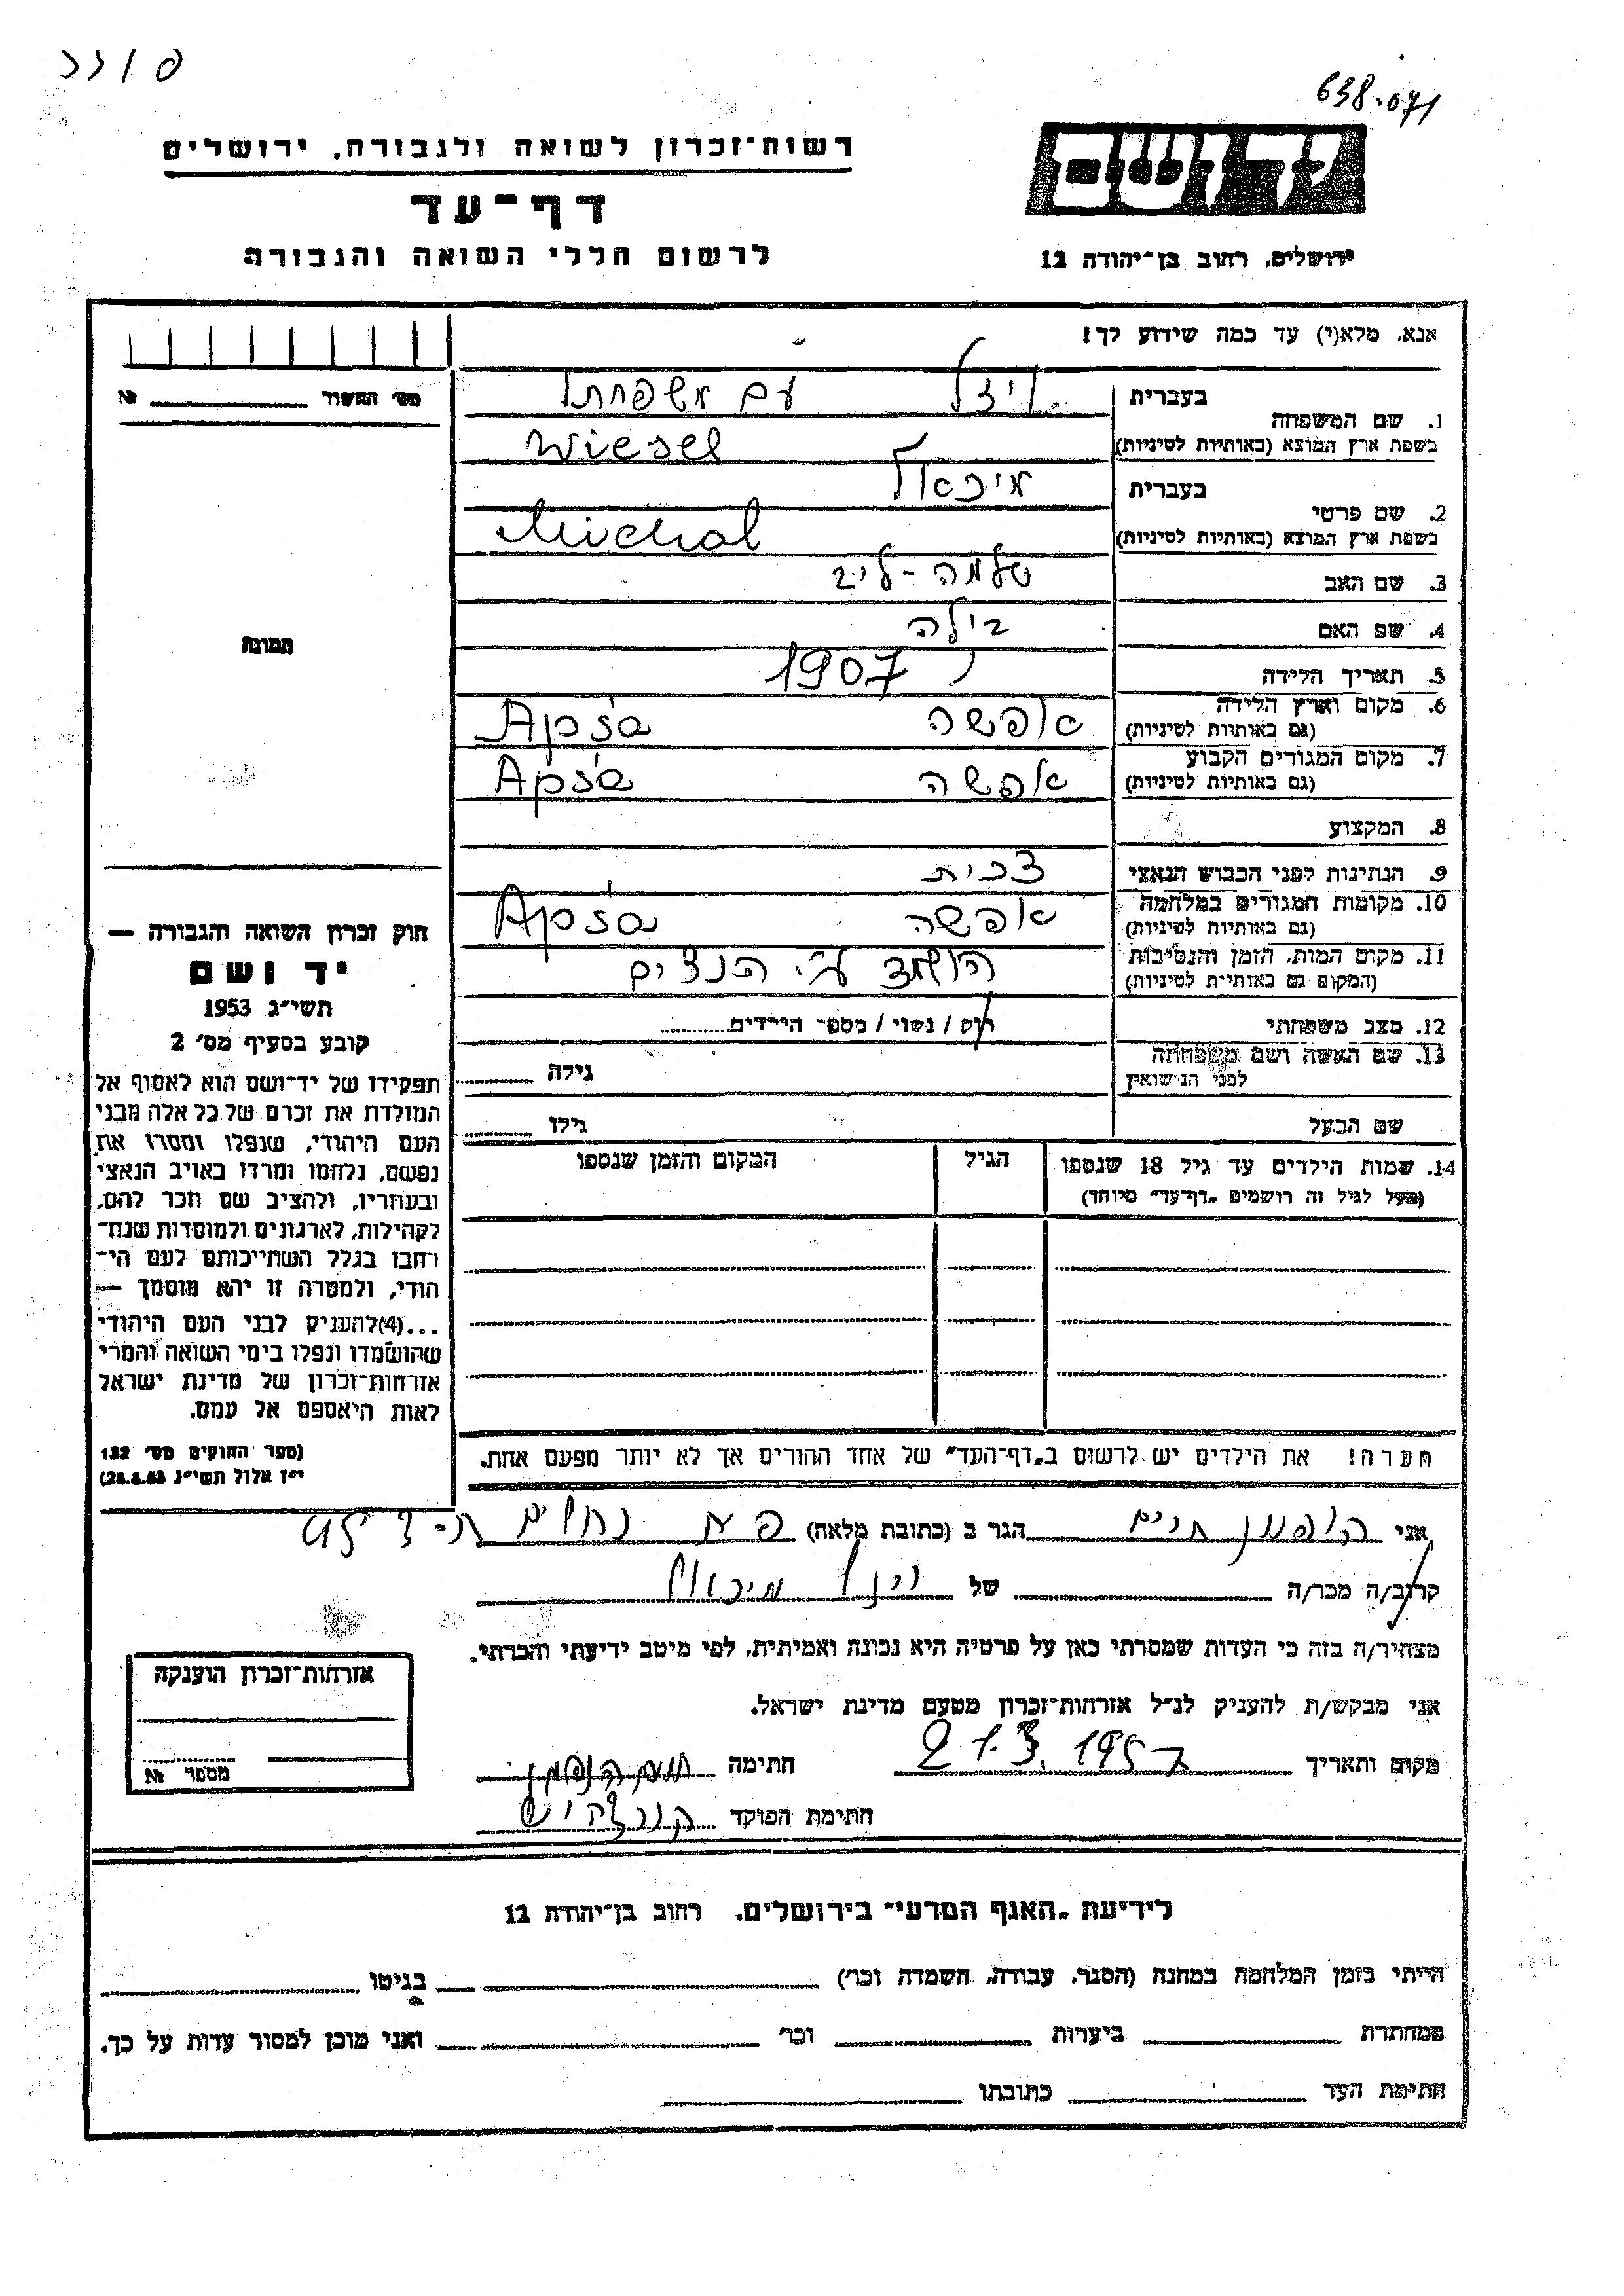 638.071
רשות־זכרון לשואה ולגבורה, ירושלים
דף־עד
לרשום חללי השואה והגבורה
ידושם
ירושלים, רחוב בן־יהודה 12
אנא, מלא(י) עד כמה שידוע לך!
מס׳ התשור №
1. שם המשפחה
בעברית ויזל עם משפחתו
בשפת ארץ המוצא (באותיות לטיניות) Wiesel
2. שם פרטי
בעברית מיכאל
בשפת ארץ המוצא (באותיות לטיניות) Michal
3. שם האב שלמה-ליב
4. שם האם בילה
5. תאריך הלידה 1907
6. מקום וארץ הלידה (גם באותיות לטיניות) אפשה Apša
7. מקום המגורים הקבוע (גם באותיות לטיניות) אפשה Apša
8. המקצוע
9. הנתינות לפני הכבוש הנאצי צכית
10. מקומות המגורים במלחמה (גם באותיות לטיניות) אפשה Apša
11. מקום המות, הזמן והנסיבות (המקום גם באותיות לטיניות) הושמד ע״י הנצים
12. מצב משפחתי רוק / נשוי / מספר הילדים
13. שם האשה ושם משפחתה לפני הנישואין גילה
שם הבעל גילו
14. שמות הילדים עד גיל 18 שנספו הגיל המקום והזמן שנספו
(מעל לגיל זה רושמים „דף־עד״ מיוחד)
הערה! את הילדים יש לרשום ב„דף־העד״ של אחד ההורים אך לא יותר מפעם אחת.
תמונה
חוק זכרון השואה והגבורה —
יד ושם
תשי״ג 1953
קובע בסעיף מס׳ 2
תפקידו של יד־ושם הוא לאסוף אל
המולדת את זכרם של כל אלה מבני
העם היהודי, שנפלו ומסרו את
נפשם, נלחמו ומרדו באויב הנאצי
ובעוזריו, ולהציב שם וזכר להם,
לקהילות, לארגונים ולמוסדות שנח־
רבו בגלל השתייכותם לעם הי־
הודי, ולמטרה זו יהא מוסמך —
...(4) להעניק לבני העם היהודי
שהושמדו ונפלו בימי השואה והמרי
אזרחות־זכרון של מדינת ישראל
לאות היאספם אל עמם.
(ספר החוקים מס׳ 132
י״ז אלול תשי״ג 28.8.53)
אני הופמן חיים הגר ב (כתובת מלאה)
קרוב/ה מכר/ה של ויזל מיכאל
מצהיר/ה בזה כי העדות שמסרתי כאן על פרטיה היא נכונה ואמיתית, לפי מיטב ידיעתי והכרתי.
אני מבקש/ת להעניק לנ״ל אזרחות־זכרון מטעם מדינת ישראל.
מקום ותאריך 21.3.1957 חתימה חיים הופמן
חתימת הפוקד
אזרחות־זכרון הוענקה
מספר №
לידיעת „האגף המדעי״ בירושלים, רחוב בן־יהודה 12
הייתי בזמן המלחמה במחנה (הסגר, עבודה, השמדה וכו׳) בגיטו
במחתרת ביערות וכו׳ ואני מוכן למסור עדות על כך.
חתימת העד כתובתו